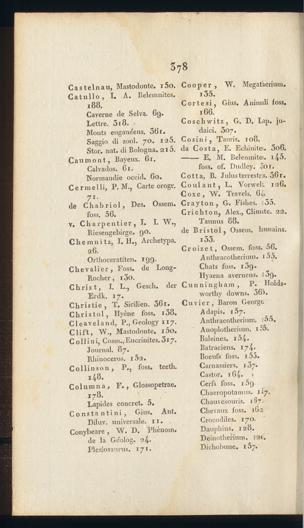 378
Castelnau, Mastodonte. 150.
Catullo, I. A. Belemnites.
188.
Caverne de Selva. 69.
Lettre. 318.
Monts euganéens. 361.
Saggio di zool. 70. 125.
Stor. nat. di Bologna. 215.
Caumont, Bayeux. 61.
Calvados. 61.
Normandie occid. 60.
Cermelli, P. M., Carte orogr.
71.
de Chabriol, Des. Ossem.
foss. 56.
v. Charpentier, I. I. W.,
Riesengebirge. 90.
Chemnitz, I. H., Archetypa.
26.
Orthoceratiten. 199.
Chevalier, Foss. de Long-
Rocher, 130.
Christ, I. L., Gesch. der
Erdk. 17.
Christie, T. Sicilien. 361.
Christol, Hyène foss. 138.
Cleaveland, P., Geology 117.
Clift, W., Mastodonte. 150.
Collini, Cosm., Encrinites. 317.
Journal. 87.
Rhinoceros. 152.
Collinson, P., foss. teeth.
148.
Columna, F., Glossopetrae.
178.
Lapides concret. 5.
Constantini, Gius. Ant.
Diluv. universale. 11.
Conybeare, W. D. Phénom.
de la Géolog. 24.
Plesiosaurus. 171.
Cooper, W. Megatherium.
135.
Cortesi, Gius. Animali foss.
166.
Coschwitz, G. D. Lap. ju-
daici. 307.
Cosini, Tauris. 108.
da Costa, E. Echinite. 306.
— E. M. Belemnite. 145.
foss. of. Dudley. 301.
Cotta, B. Julus terrestris. 361.
Coulant, L. Vorwelt. 126.
Coxe, W. Travels. 64
Crayton, G. Fishes. 135.
Crichton, Alex., Climate. 22.
Taunus 88.
de Bristol, Ossem. humains.
133.
Croizet, Ossem. foss. 56.
Anthracotherium. 155.
Chats foss. 159.
Hyaena averneus. 159.
Cunningham, P. Holds-
worthy downs. 361.
Cuvier, Baron George
Adapis. 157.
Anthracotherium. 155.
Anoplotherium. 155.
Baleines. 154.
Batraciens. 174.
Boeufs foss. 155.
Carnassiers. 157.
Castor. 164.
Cerfs foss. 159
Chaeropotamus. 157.
Chauvesouris. 167.
Chevaux foss. 162
Crocodiles. 170.
Dauphins. 128.
Deinotherium. 121.
Dichobune. 157.